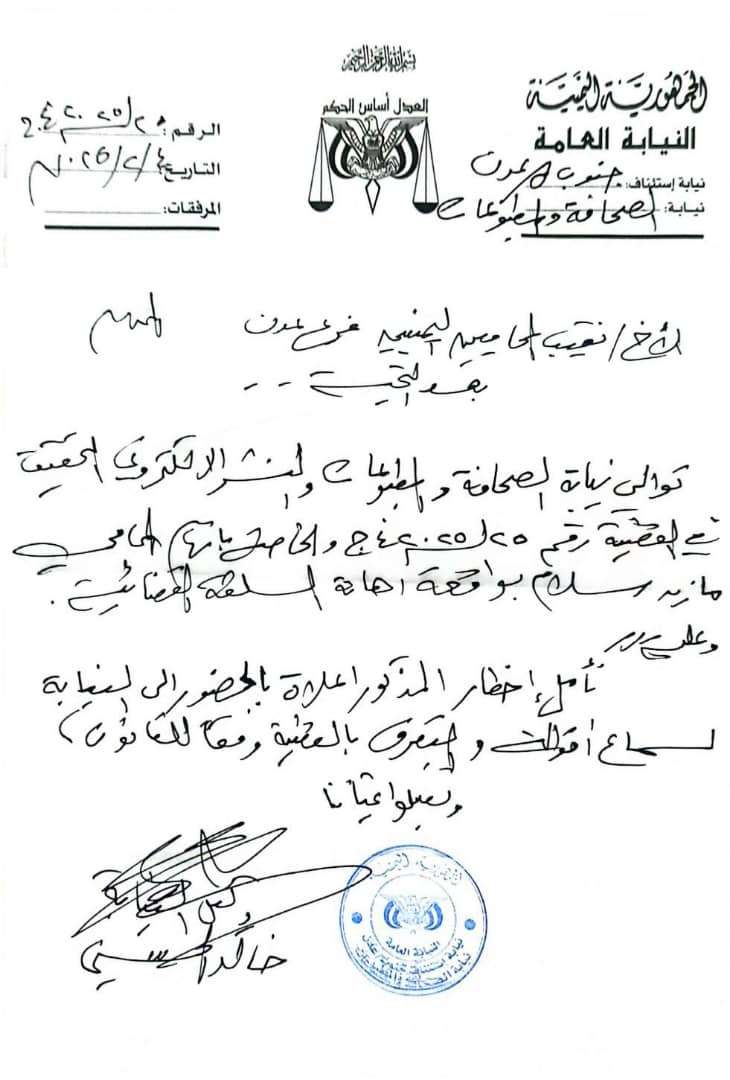 بسم الله الرحمن الرحيم
الجمهورية اليمنية
النيابة العامة
نيابة إستئناف: جنوب عدن
نيابة: الصحافة والمطبوعات
العدل أساس الحكم
الرقم:
التاريخ:
المرفقات:
الأخ/ نقيب المحامين اليمنيين فرع عدن المحترم
بعد التحية --
توالي نيابة الصحافة والمطبوعات والنشر الالكتروني التحقيق
في القضية رقم ٢٥ لسنة ٢٠٢٥ ج والخاصة باتهام المحامي
مازن سلام بواقعة اهانة السلطة القضائية.
وعليه
نأمل إخطار المذكور اعلاة بالحضور الى النيابة
لسماع أقواله والتصرف بالقضية وفقاً للقانون،
وتقبلوا تحياتنا
وكيل النيابة
خالد الحسيني
الجمهورية اليمنية
النيابة العامة
نيابة استئناف جنوب عدن
نيابة الصحافة والمطبوعات